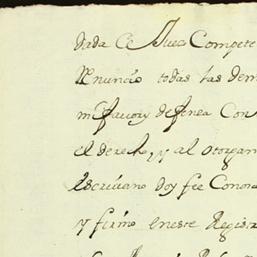 dada
Renuncio todas las dem
mi favor y defensa Con
el derecho, y al otorgam
Escrivano doy fee Cono
y firmo en este Regist